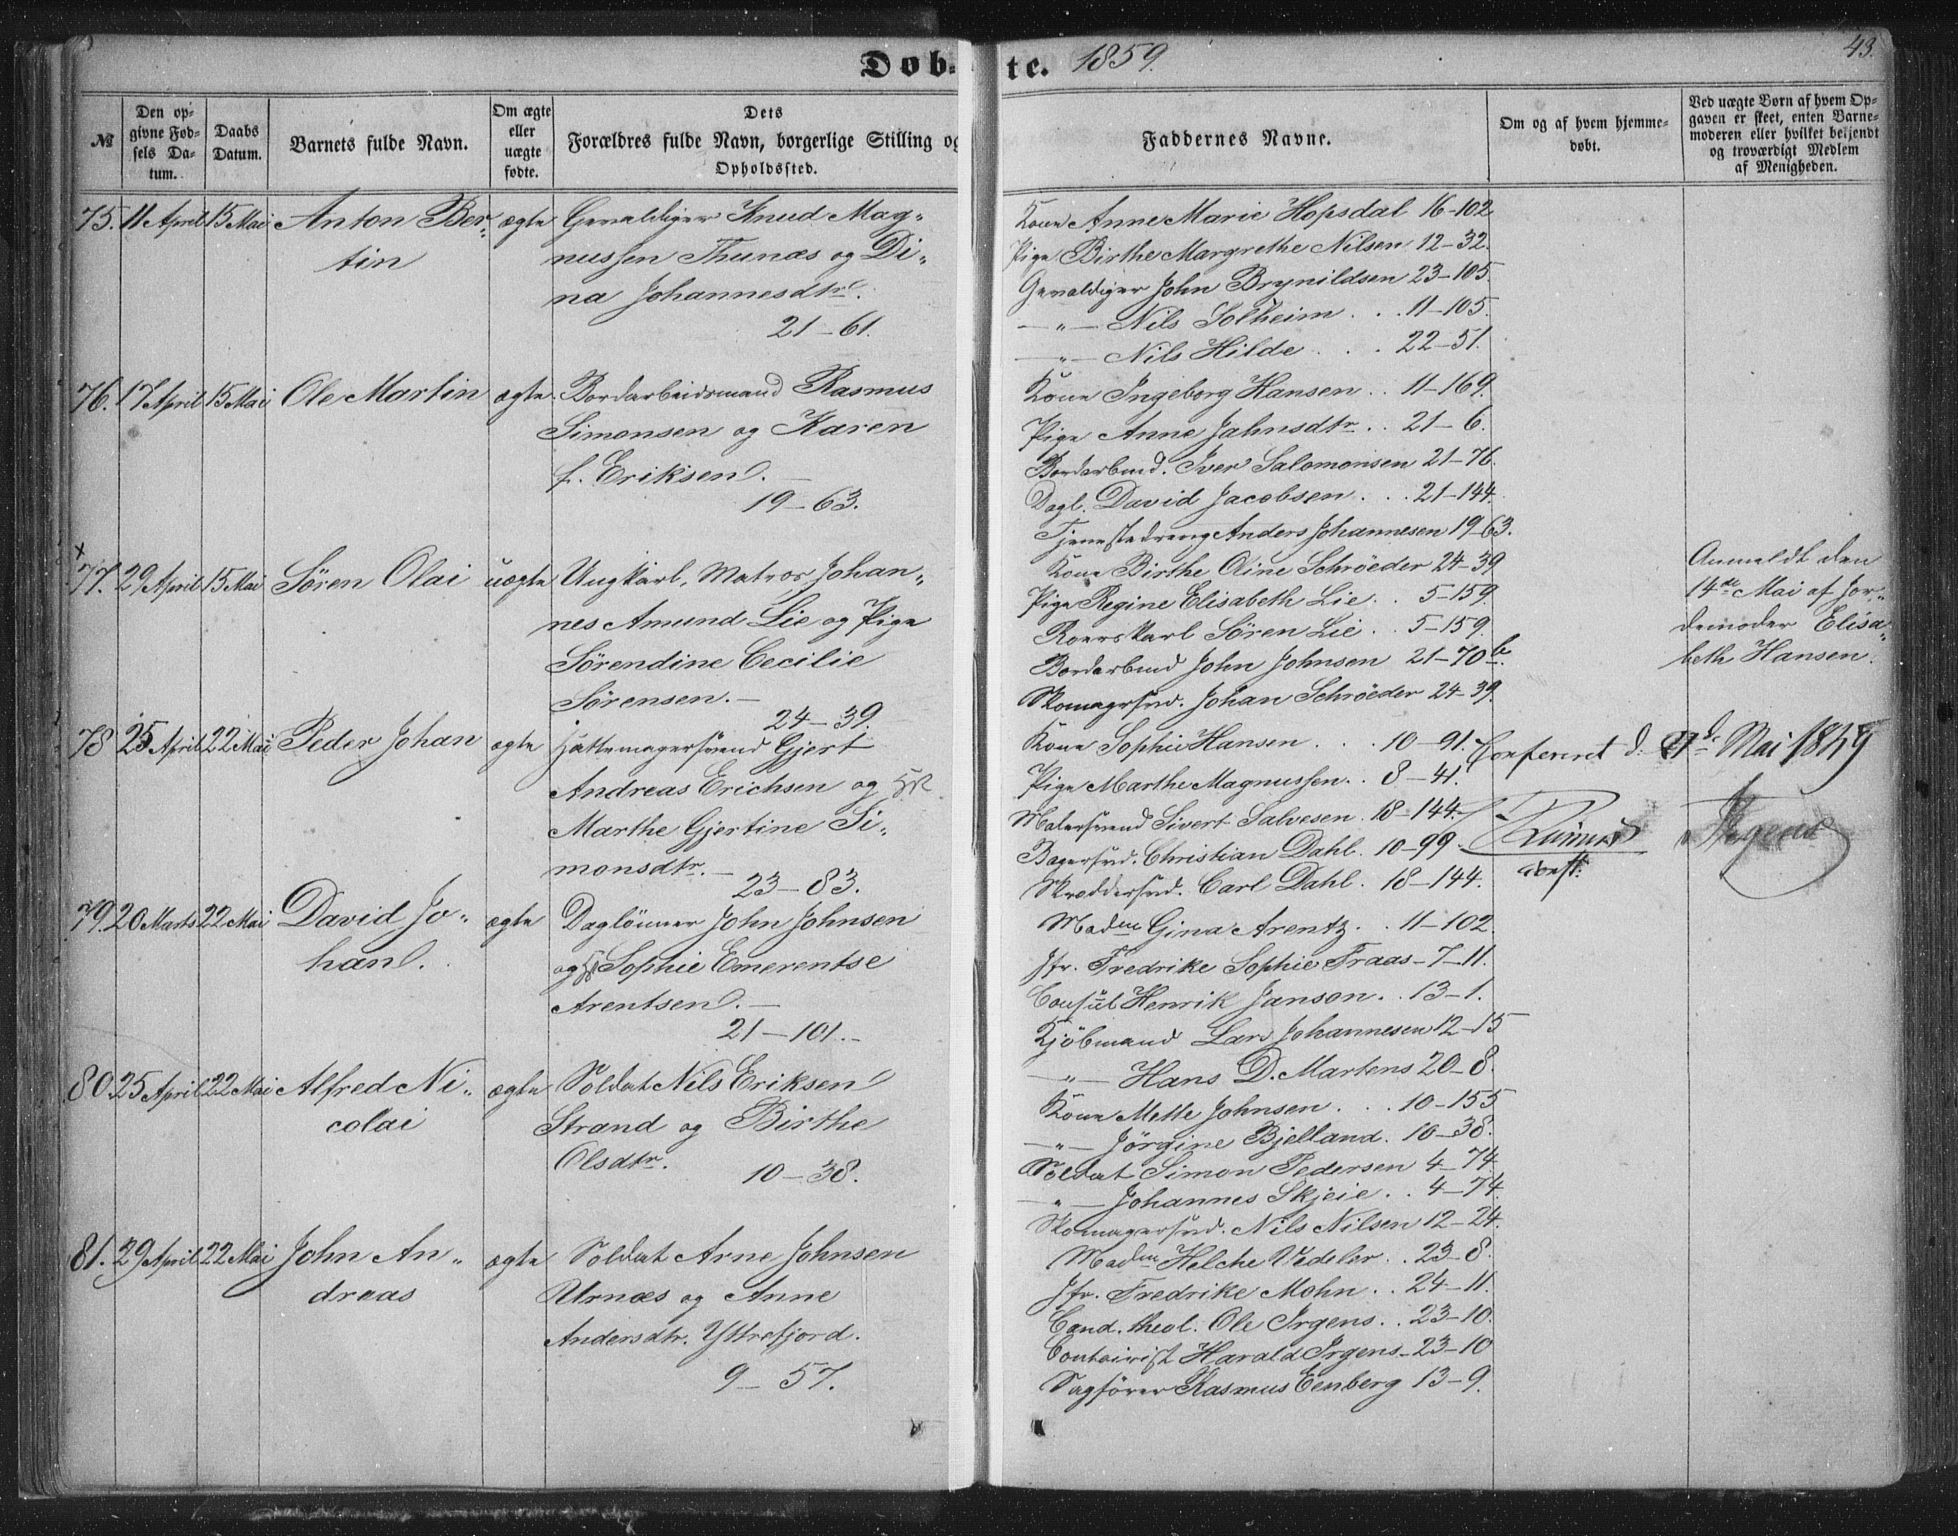 Døb-
te. 1859.
43.
№
Den op-
givne Fød-
sels Da-
tum.
Daabs
Datum.
Barnets fulde Navn.
Om ægte
eller
uægte
fødte.
Dets
Forældres fulde Navn, borgerlige Stilling og
Opholdssted.
Faddernes Navne.
Om og af hvem hjemme-
døbt.
Ved uægte Børn af hvem Op-
gaven er skeet, enten Barne-
moderen eller hvilket bekjendt
og troværdigt Medlem
af Menigheden.
75. 11 April 15 Mai Anton Ber- ægte Gevaldiger Knud Mag-
tin nussen Thunæs og Di-
na Johannesdtr.
21-61.
Kone Anne Marie Hopsdal 16-102
Pige Birthe Margrethe Nilsen 12-32.
Gevaldiger John Brynildsen 23-105.
—"— Nils Solheim . . 11-105.
—"— Nils Hilde . . . 22-51.
76. 17 April 15 Mai Ole Martin ægte Bordarbeidsmand Rasmus
Simonsen og Karen
f. Eriksen.—
19-63.
Kone Ingeborg Hansen . . 11-169.
Pige Anne Jahnsdtr . . 21-6.
Bordarbmd. Iver Salomonsen 21-76.
Dagl. David Jacobsen . . 21-144.
Tjenestedreng Anders Johannesen 19-63.
x
77. 29 April 15 Mai Sören Olai uægte Ungkarl, Matros Johan-
nes Amund Lie og Pige
Sörendine Cecilie
Sörensen.—
24-39.
Kone Birthe Oline Schröeder 24-39
Pige Regine Elisabeth Lie . . 5-159.
Roerskarl Sören Lie . . 5-159.
Bordarbmd John Johnsen 21-70b.
Skomagersvd. Johan Schröeder 24-39.
Anmeldt den
14de Mai af Jor-
demoder Elisa-
beth Hansen.
78 25 April 22 Mai Peder Johan ægte Hattemagersvend Gjert
Andreas Erichsen og
Marthe Gjertine Si-
monsdtr.—
23-83.
Kone Sophie Hansen . . . 10-91.
Pige Marthe Magnussen . . 8-41.
Malersvend Sivert Salvesen 18-144.
Bagersvd. Christian Dahl. 10-99.
Skreddersvd. Carl Dahl . 18-144.
Confereret d. Mai 1859
const.
79. 20 Marts 22 Mai David Jo- ægte Daglönner John Johnsen
han. og Sophie Emerentse
Arentsen.—
21-101.
Madm Gina Arentz . . 11-102.
Jfr. Fredrike Sophie Fraas-7-11.
Consul Henrik Janson . . 13-1.
Kjöbmand Lars Johannesen 12-15
—"— Hans D. Martens 20-8.
80. 25 April 22 Mai Alfred Ni- ægte Soldat Nils Eriksen
colai Strand og Birthe
Olsdtr.
10-38.
Kone Mette Johnsen . . . 10-155
—"— Jörgine Bjelland . 10-38.
Soldat Simon Pedersen 4-74
—"— Johannes Skjeie . . 4-74.
Skomagersvd. Nils Nilsen 12-24.
81. 29 April 22 Mai John An- ægte Soldat Arne Johnsen
dreas Urnæs og Anne
Andersdtr. Yttrefjord.
9-57.
Madm Helche Vedeler . . 23-8.
Jfr. Fredrike Mohn . . 24-11.
Cand. theol. Ole Irgens . . 23-10.
Contoirist Harald Irgens-23-10
Sagförer Rasmus Eenberg 13-9.